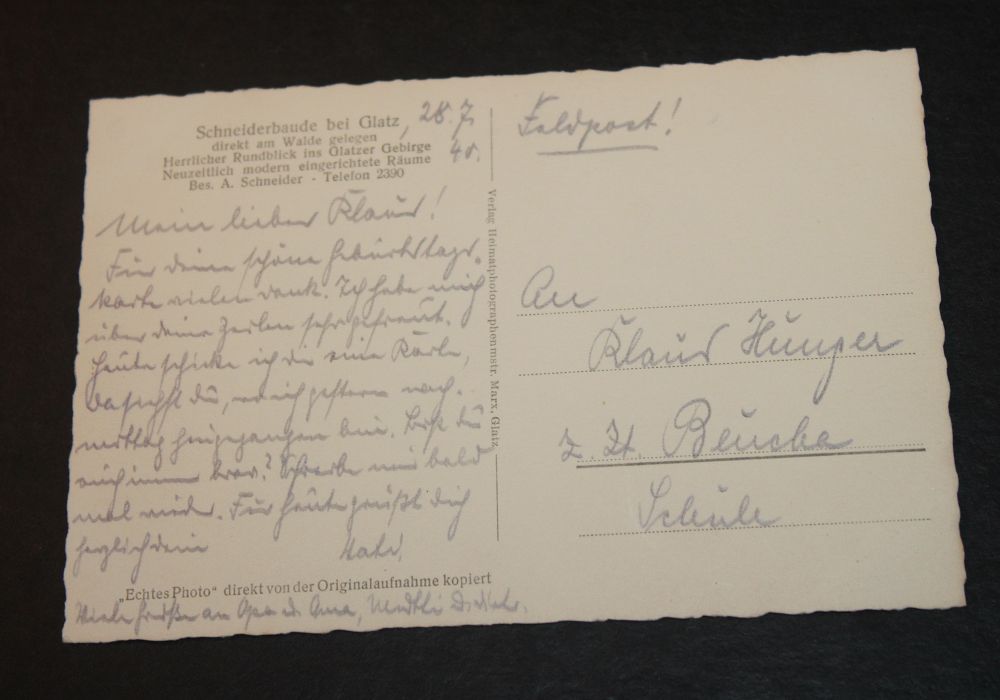 Schneiderbaude bei Glatz, 28.7.
direkt am Walde gelegen
Herrlicher Rundblick ins Glatzer Gebirge 40.
Neuzeitlich modern eingerichtete Räume
Bes. A. Schneider - Telefon 2390
Mein lieber Klaus!
Für deine schöne Geburtstags-
karte vielen Dank. Ich habe mich
über deine Zeilen sehr gefreut.
Heute schicke ich dir eine Karte,
da siehst du, wo ich gestern nach-
mittag hingegangen bin. Bist du
auch immer brav? Schreibe mir bald
mal wieder. Für heute grüßt dich
herzlich dein Vati.
„Echtes Photo“ direkt von der Originalaufnahme kopiert
Viele Grüße an Opa u. Oma,
Verlag Heimatphotographenmstr. Marx, Glatz
Feldpost!
An
Klaus Hunger
z. Zt. Beucha
Schule